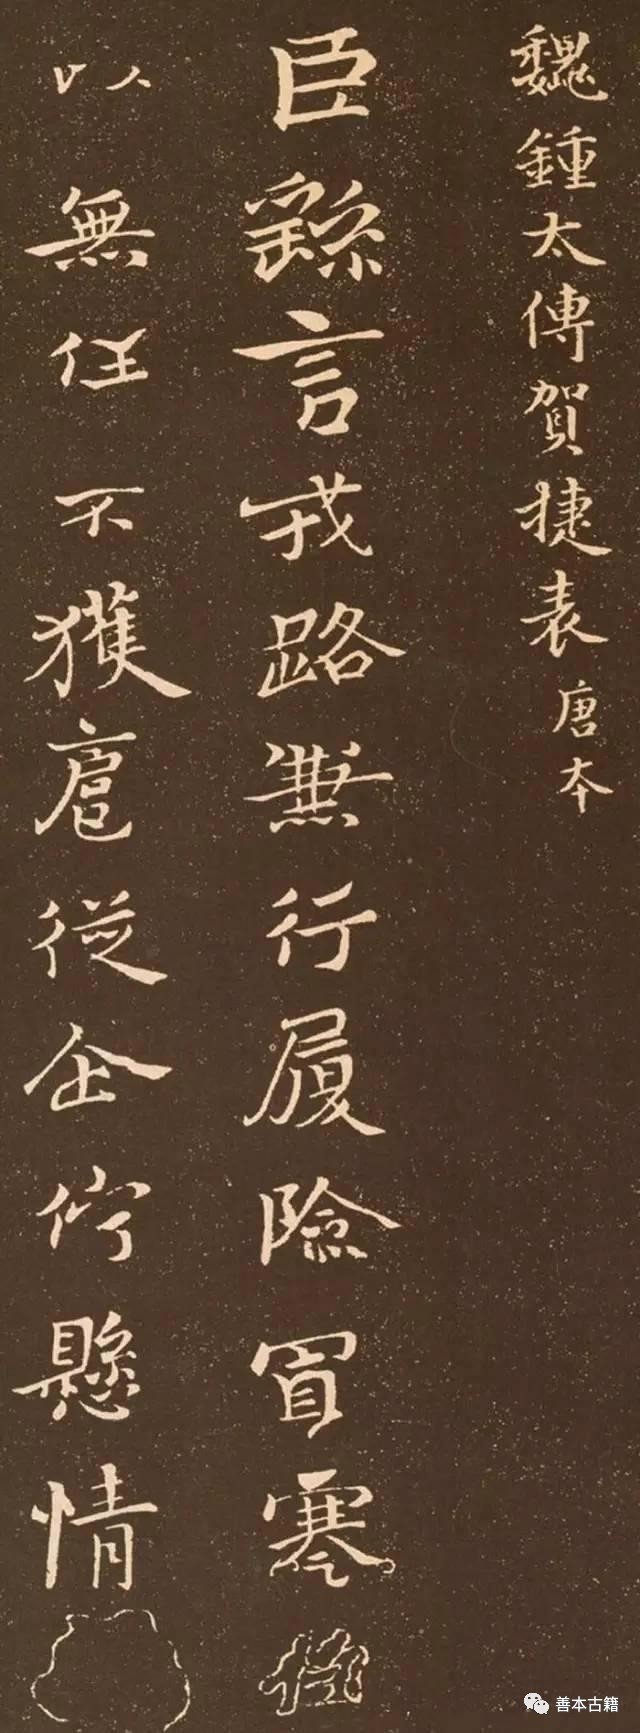 魏鍾太傅賀捷表 唐本
臣繇言戎路兼行履險冒寒
以無任不獲扈從企佇懸情
善本古籍